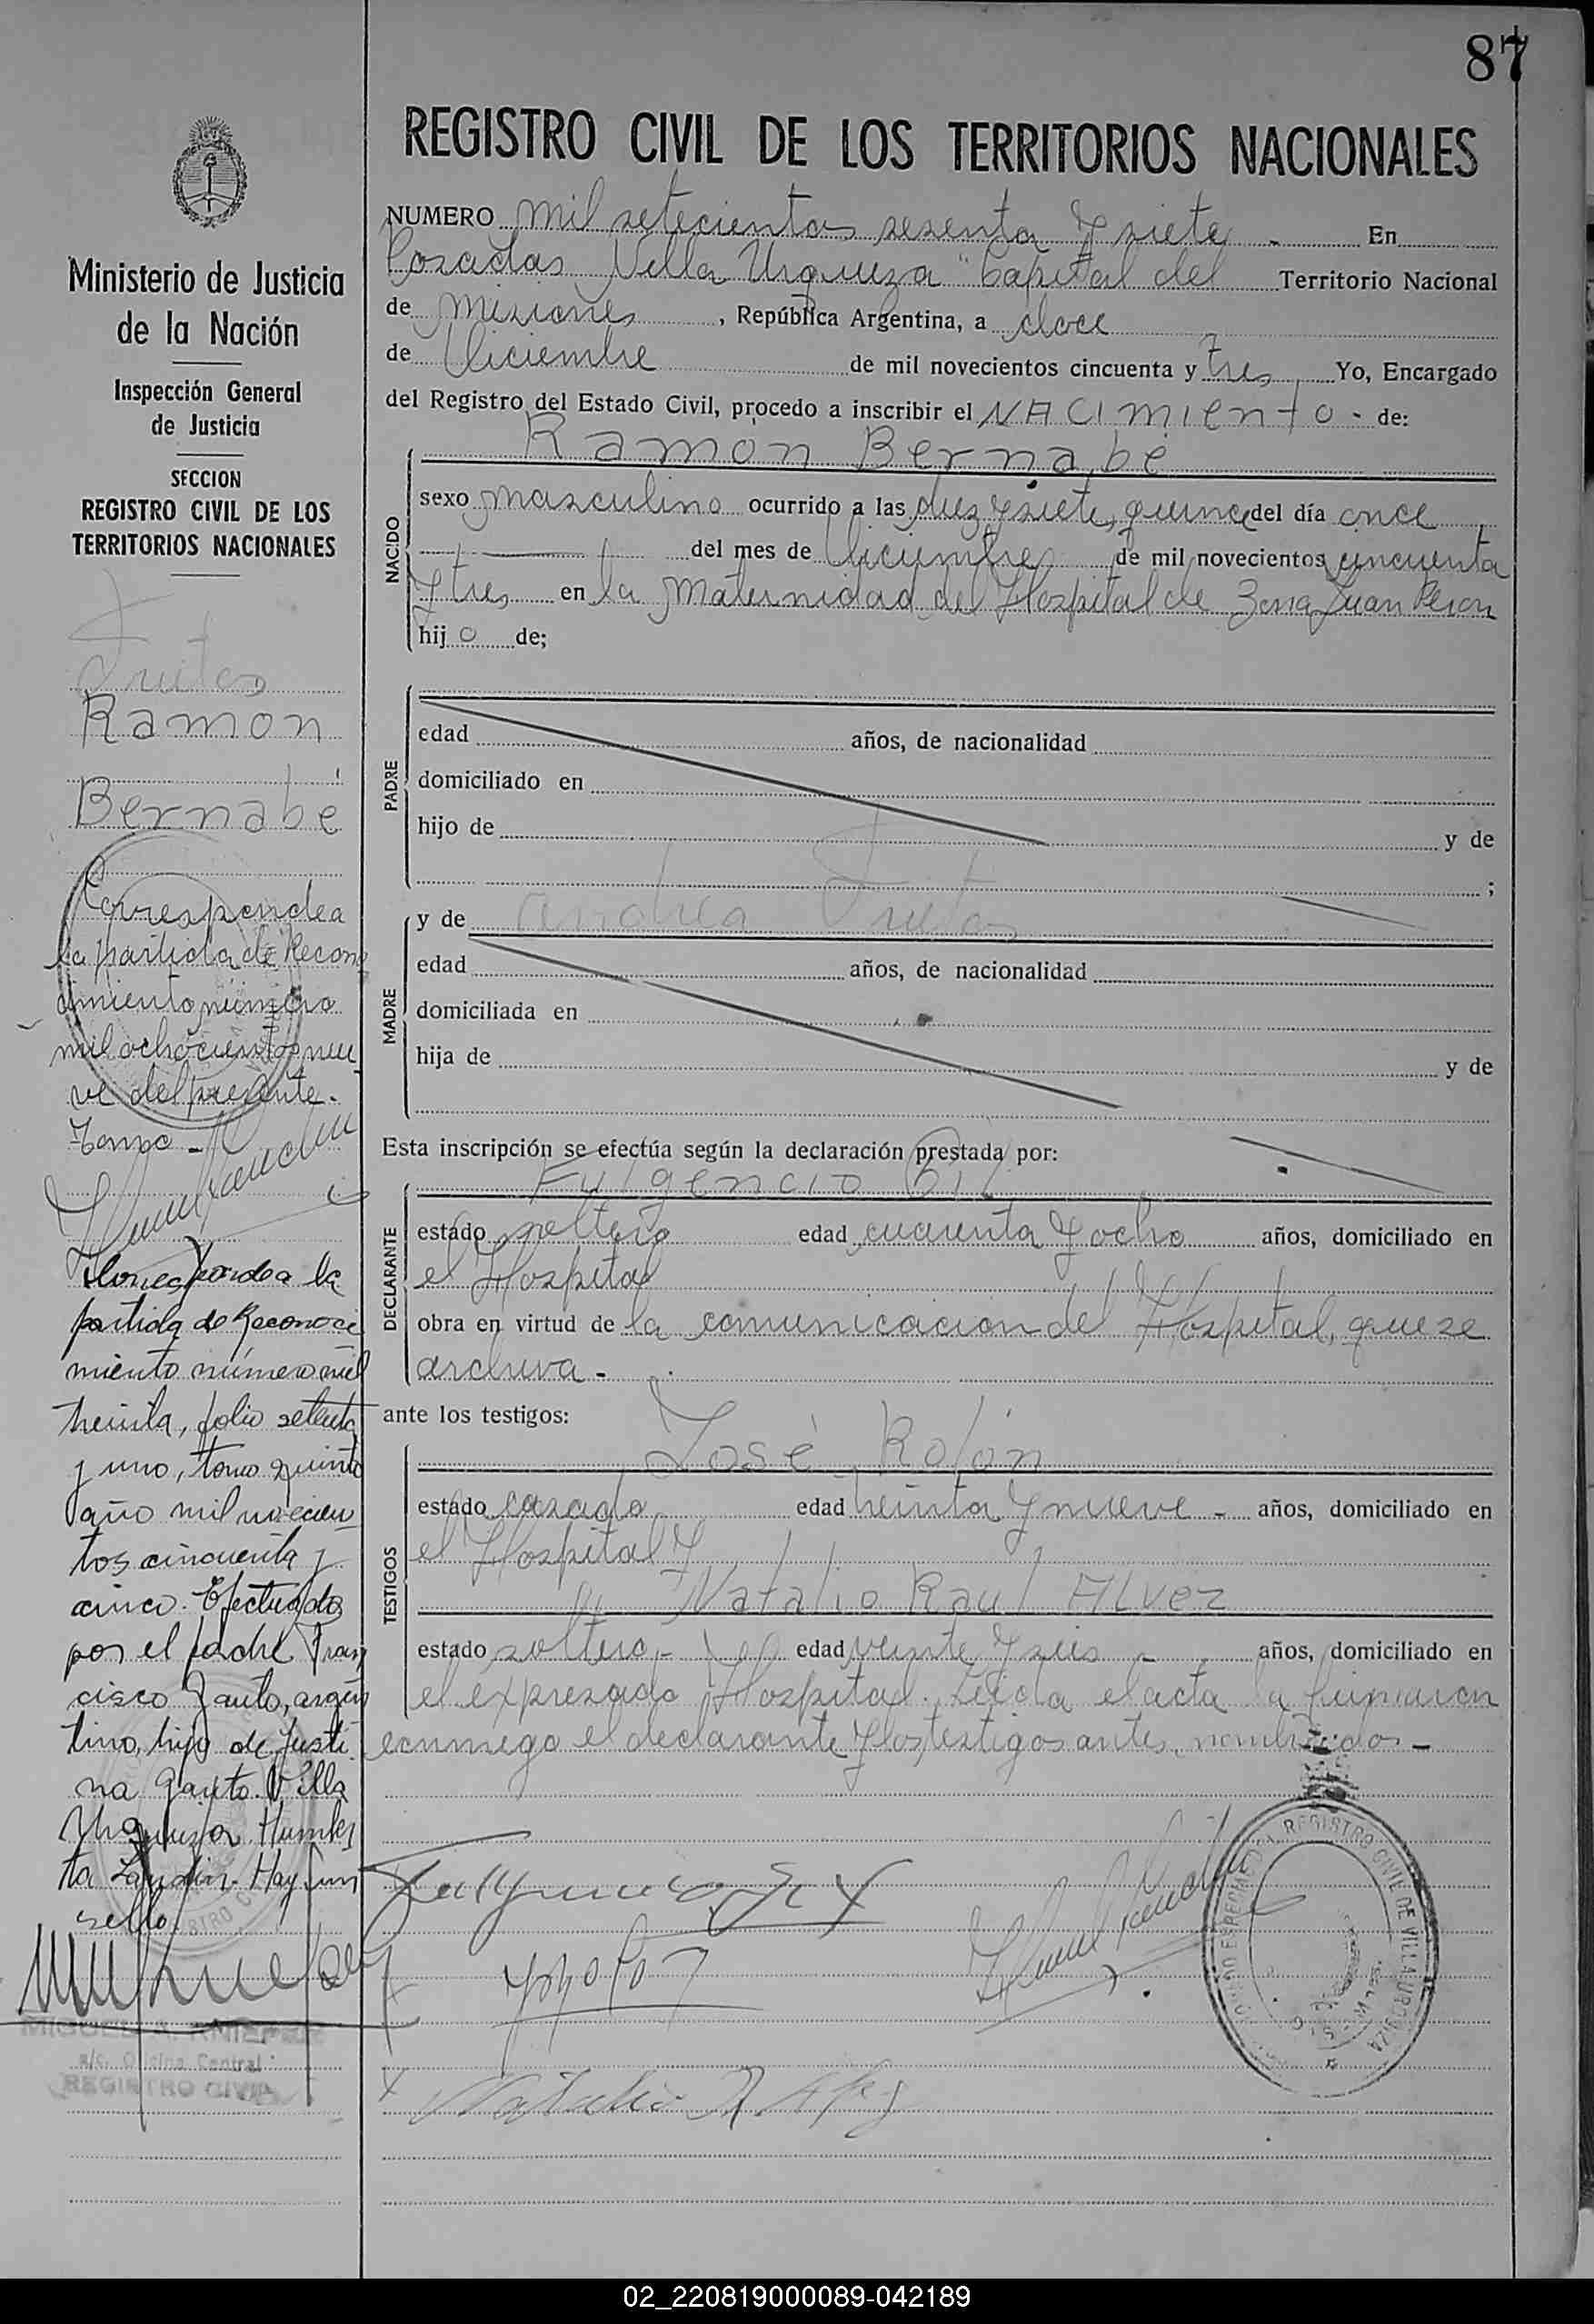 87
REGISTRO CIVIL DE LOS TERRITORIOS NACIONALES
Ministerio de Justicia
de la Nación
Inspección General
de Justicia
SECCION
REGISTRO CIVIL DE LOS
TERRITORIOS NACIONALES
Fretes
Ramón
Bernabé
Corresponde a
la partida de Recono
cimiento número
mil ochocientos nue
ve del presente.
Tomo -
Corresponde a la
partida de Reconoci
miento número mil
treinta, folio setenta
y uno, tomo quinto
año mil novecien
tos cincuenta y
cinco. Efectuada
por el padre Fran
cisco Gauto, argen
tino, hijo de Justi
na Gauto. Villa
Urquiza Humber
to Landin. Hay un
sello
a/c. Oficina Central
REGISTRO CIVIL
NUMERO mil setecientos sesenta y siete - En
Posadas Villa Urquiza" Capital del Territorio Nacional
de Misiones , República Argentina, a doce
de Diciembre de mil novecientos cincuenta y tres Yo, Encargado
del Registro del Estado Civil, procedo a inscribir el NACIMIENTO - de:
Ramón Bernabé
NACIDO
sexo masculino ocurrido a las diez y siete, quince del día once
del mes de Diciembre de mil novecientos cincuenta
y tres en la Maternidad del Hospital de Zona Juan Peron
hijo de;
PADRE
edad años, de nacionalidad
domiciliado en
hijo de y de
;
MADRE
y de Andrea Fretes
edad años, de nacionalidad
domiciliada en
hija de y de
Esta inscripción se efectúa según la declaración prestada por:
DECLARANTE
Fulgencio Gil
estado soltero edad cuarenta y ocho años, domiciliado en
el Hospital
obra en virtud de la comunicacion del Hospital, que se
archiva -
ante los testigos:
TESTIGOS
José Rolón
estado casado edad treinta y nueve - años, domiciliado en
el Hospital y
Natalio Raul Alvez
estado soltero - edad veinte y seis - años, domiciliado en
el expresado Hospital. Leida el acta la firmaron
conmigo el declarante y los testigos antes nombrados -
REGISTRO CIVIL DE VILLA URQUIZA
02_220819000089-042189